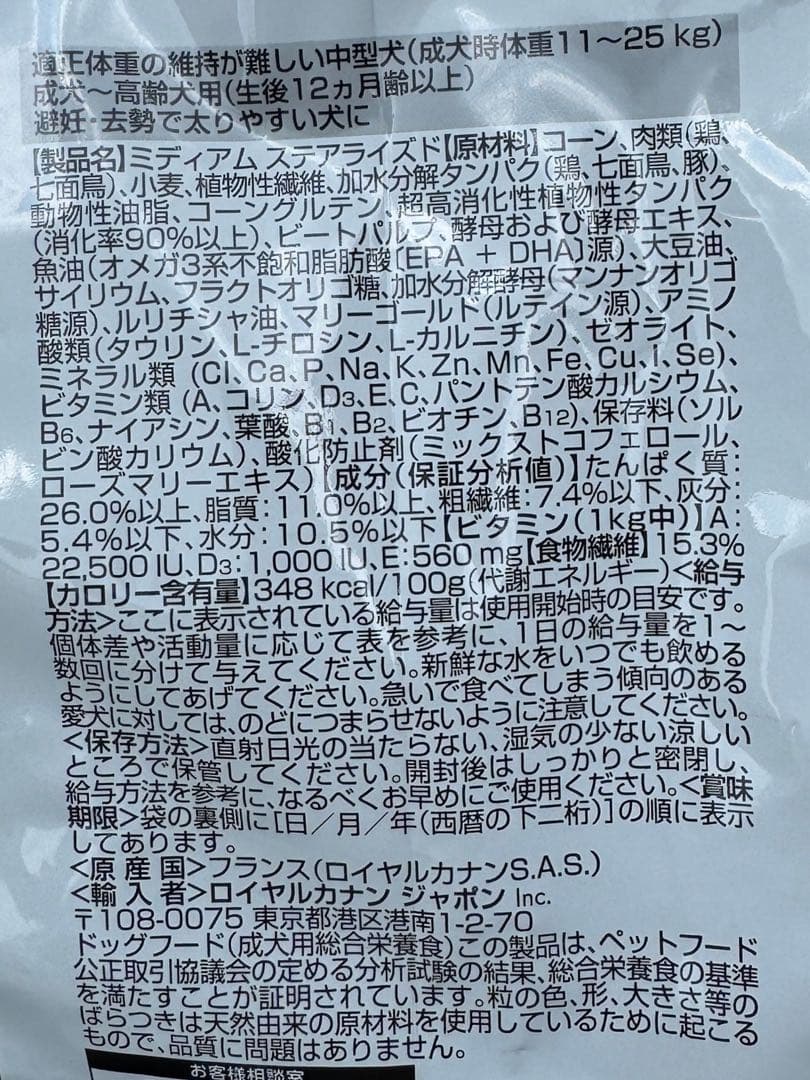 適正体重の維持が難しい中型犬(成犬時体重11～25 kg)
成犬～高齢犬用(生後12ヵ月齢以上)
避妊・去勢で太りやすい犬に
【製品名】ミディアム ステアライズド【原材料】コーン、肉類(鶏、
七面鳥)、小麦、植物性繊維、加水分解タンパク(鶏、七面鳥、豚)、
動物性油脂、コーングルテン、超高消化性植物性タンパク
(消化率90%以上)、ビートパルプ、酵母および酵母エキス、
魚油(オメガ3系不飽和脂肪酸〔EPA + DHA〕源)、大豆油、
サイリウム、フラクトオリゴ糖、加水分解酵母(マンナンオリゴ
糖源)、ルリチシャ油、マリーゴールド(ルテイン源)、アミノ
酸類(タウリン、L-チロシン、L-カルニチン)、ゼオライト、
ミネラル類 (Cl、Ca、P、Na、K、Zn、Mn、Fe、Cu、I、Se)、
ビタミン類 (A、コリン、D3、E、C、パントテン酸カルシウム、
B6、ナイアシン、葉酸、B1、B2、ビオチン、B12)、保存料(ソル
ビン酸カリウム)、酸化防止剤(ミックストコフェロール、
ローズマリーエキス)【成分(保証分析値)】たんぱく質:
26.0%以上、脂質:11.0%以上、粗繊維:7.4%以下、灰分:
5.4%以下、水分:10.5%以下【ビタミン(1kg中)】A:
22,500 IU、D3:1,000 IU、E:560 mg【食物繊維】15.3%
【カロリー含有量】348 kcal/100g(代謝エネルギー)<給与
方法>ここに表示されている給与量は使用開始時の目安です。
個体差や活動量に応じて表を参考に、1日の給与量を1～
数回に分けて与えてください。新鮮な水をいつでも飲める
ようにしてあげてください。急いで食べてしまう傾向のある
愛犬に対しては、のどにつまらせないように注意してください。
<保存方法>直射日光の当たらない、湿気の少ない涼しい
ところで保管してください。開封後はしっかりと密閉し、
給与方法を参考に、なるべくお早めにご使用ください。<賞味
期限>袋の裏側に[日/月/年(西暦の下二桁)]の順に表示
してあります。
<原産国>フランス(ロイヤルカナンS.A.S.)
<輸入者>ロイヤルカナン ジャポン Inc.
〒108-0075 東京都港区港南1-2-70
ドッグフード(成犬用総合栄養食)この製品は、ペットフード
公正取引協議会の定める分析試験の結果、総合栄養食の基準
を満たすことが証明されています。粒の色、形、大きさ等の
ばらつきは天然由来の原材料を使用しているために起こる
もので、品質に問題はありません。
お客様相談室